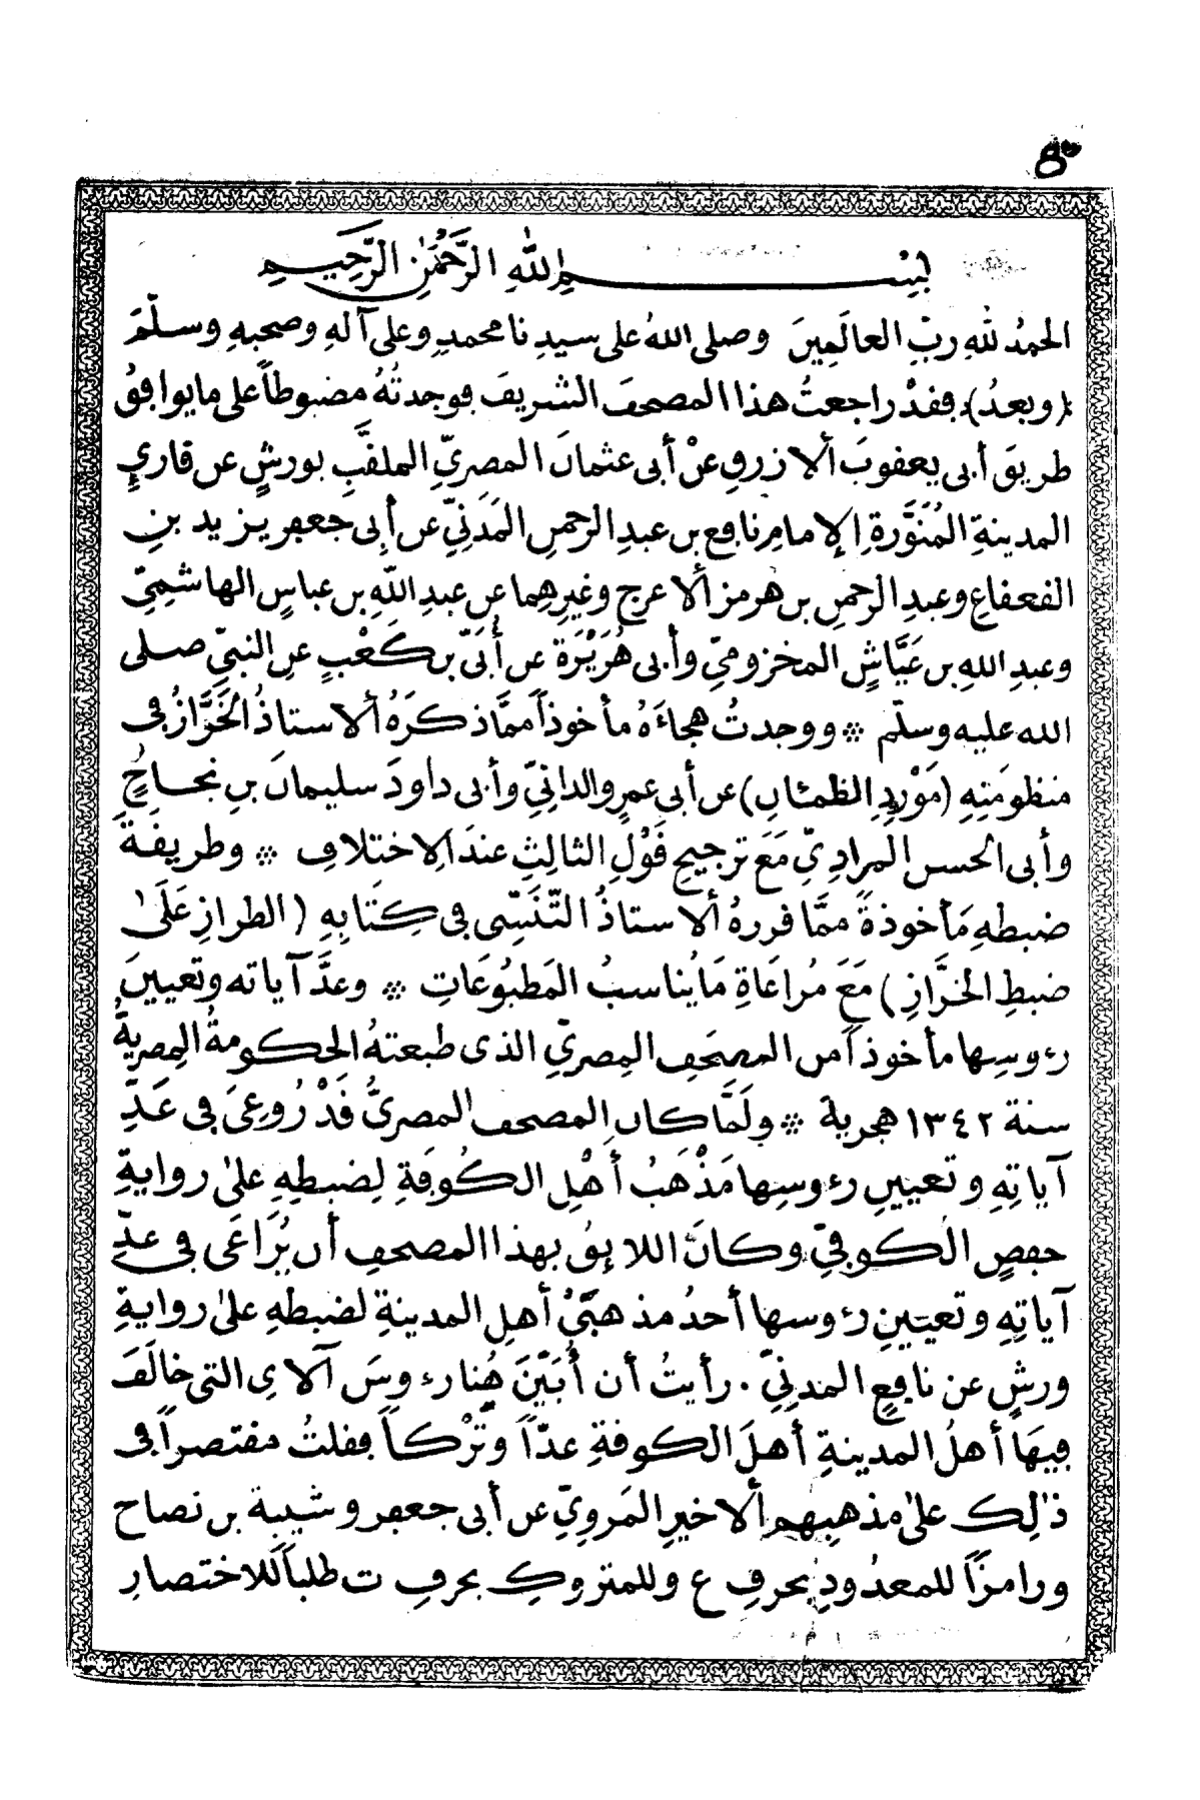 بِسْمِ اللهِ الرَّحْمٰنِ الرَّحِيمِ
الحمدُ للهِ ربِّ العالَمِينَ وصلى اللهُ على سيدِنا محمدٍ وعلى آلهِ وصحبهِ وسلّمَ
(وبعدُ) ڢقدْ راجعتُ هذا المصحفَ الشريفَ ڢوجدتُهُ مضبوطاً على ما يوافقُ
طريقَ أبى يعقوبَ ألازرقِ عنْ أبى عثمانَ المصريِّ الملقَّبِ بورشٍ عن قارئِ
المدينةِ المُنَوَّرةِ الإمامِ نافعِ بن عبدِ الرحمنِ المَدَنِيِّ عن أبى جعفرٍ يزيد بنِ
القعقاعِ وعبدِ الرحمنِ بن هرمز ألاعرج وغيرِهِما عن عبدِ اللهِ بن عباسٍ الهاشمِيِّ
وعبدِ اللهِ بن عَيَّاشٍ المخزوميِّ وأبى هُرَيْرَةَ عن أُبَىِّ بن كَعْبٍ عنِ النبيِّ صلى
الله عليه وسلّم ※ ووجدتُ هجاءَهُ مأخوذاً ممَّا ذكرَهُ ألاستاذُ الخَرَّازُ فى
منظومَتِهِ (مَوْرِدِ الظمئانِ) عن أبى عمرٍو الدانِيِّ وأبى داودَ سليمانَ بنِ نجاحٍ
وأبى الحسن المرادِيِّ مَعَ ترجيحِ قَوْلِ الثالثِ عندَ الاختلافِ ※ وطريقةَ
ضبطهِ مَأخوذةً ممَّا قررهُ ألاستاذُ التَّنَسِّى فى كِتَابِهِ (الطرازِ عَلَىٰ
ضبطِ الخرَّازِ) مَعَ مُراعَاةِ مَا يُناسبُ المَطبُوعَاتِ ※ وعدَّ آياته وتعيينَ
رءوسِها مأخوذاً من المصحَفِ المِصريِّ الذى طبعتهُ الحكومةُ المِصريةُ
سنة ١٣٤٢ هجرية ※ ولَمَّا كان المصحف المصرىُّ قَدْ رُوعِىَ فى عَدِّ
آياتِهِ وتعيينِ رءوسِها مَذْهَبُ أهْلِ الكُوفَةِ لِضبطِهِ علىٰ روايةِ
حفصٍ الكوفيِّ وكانَ اللائقُ بهذا المصحفِ أن يُرَاعَى فى عدِّ
آياتِهِ وتعيينِ رءوسها أحدُ مذهبَىْ أهلِ المدينةِ لضبطهِ علىٰ روايةِ
ورشٍ عن نافعٍ المدنِيِّ. رأيتُ أن أُبَيِّنَ هُنا رءوسَ آلاىِ التى خالَفَ
ڢيهَا أهلُ المدينةِ أهلَ الكوفةِ عدّاً وتَرْكاً ڢقلتُ مقتصراً فى
ذٰلِك علىٰ مذهبِهم ألاخيرِ المَرويِّ عن أبى جعفر وشيبة بن نصاح
ورامزاً للمعدُودِ بحرفِ ع وللمتروكِ بحرفِ ت طلباً للاختصارِ